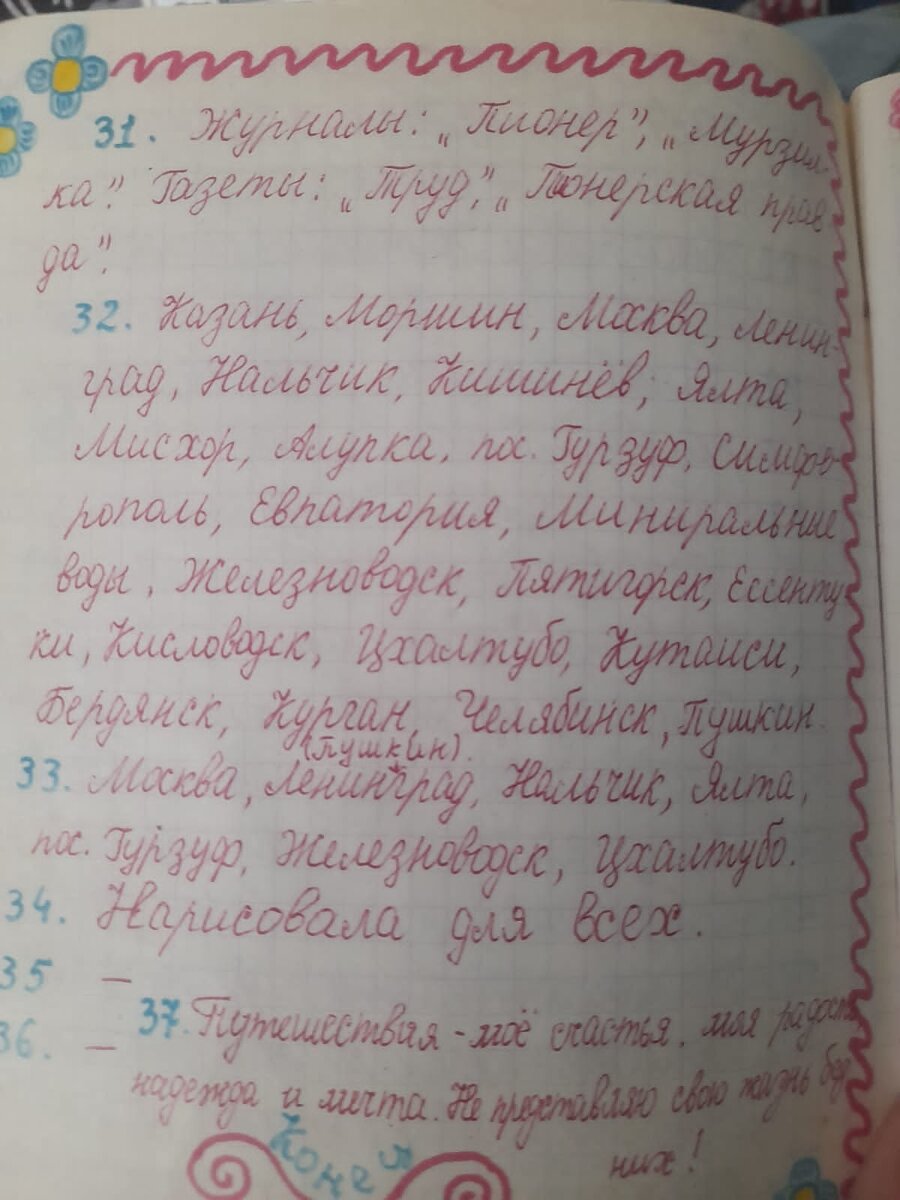 31. Журналы: „Пионер”, „Мурзил-
ка”. Газеты: „Труд”, „Пионерская прав-
да”.
32. Казань, Моршин, Москва, Ленин-
град, Нальчик, Кишинёв, Ялта,
Мисхор, Алупка, пос. Гурзуф, Симфе-
рополь, Евпатория, Миниральние
воды, Железноводск, Пятигорск, Ессенту
ки, Кисловодск, Цхалтубо, Кутаиси,
Бердянск, Курган, Челябинск, Пушкин.
(Пушкин).
33. Москва, Ленинград, Нальчик, Ялта,
пос. Гурзуф, Железноводск, Цхалтубо.
34. Нарисовала для всех.
35 —
36. —
37. Путешествия - моё счастья, моя радость
надежда и мечта. Не представляю свою жизнь без
них!
Конец